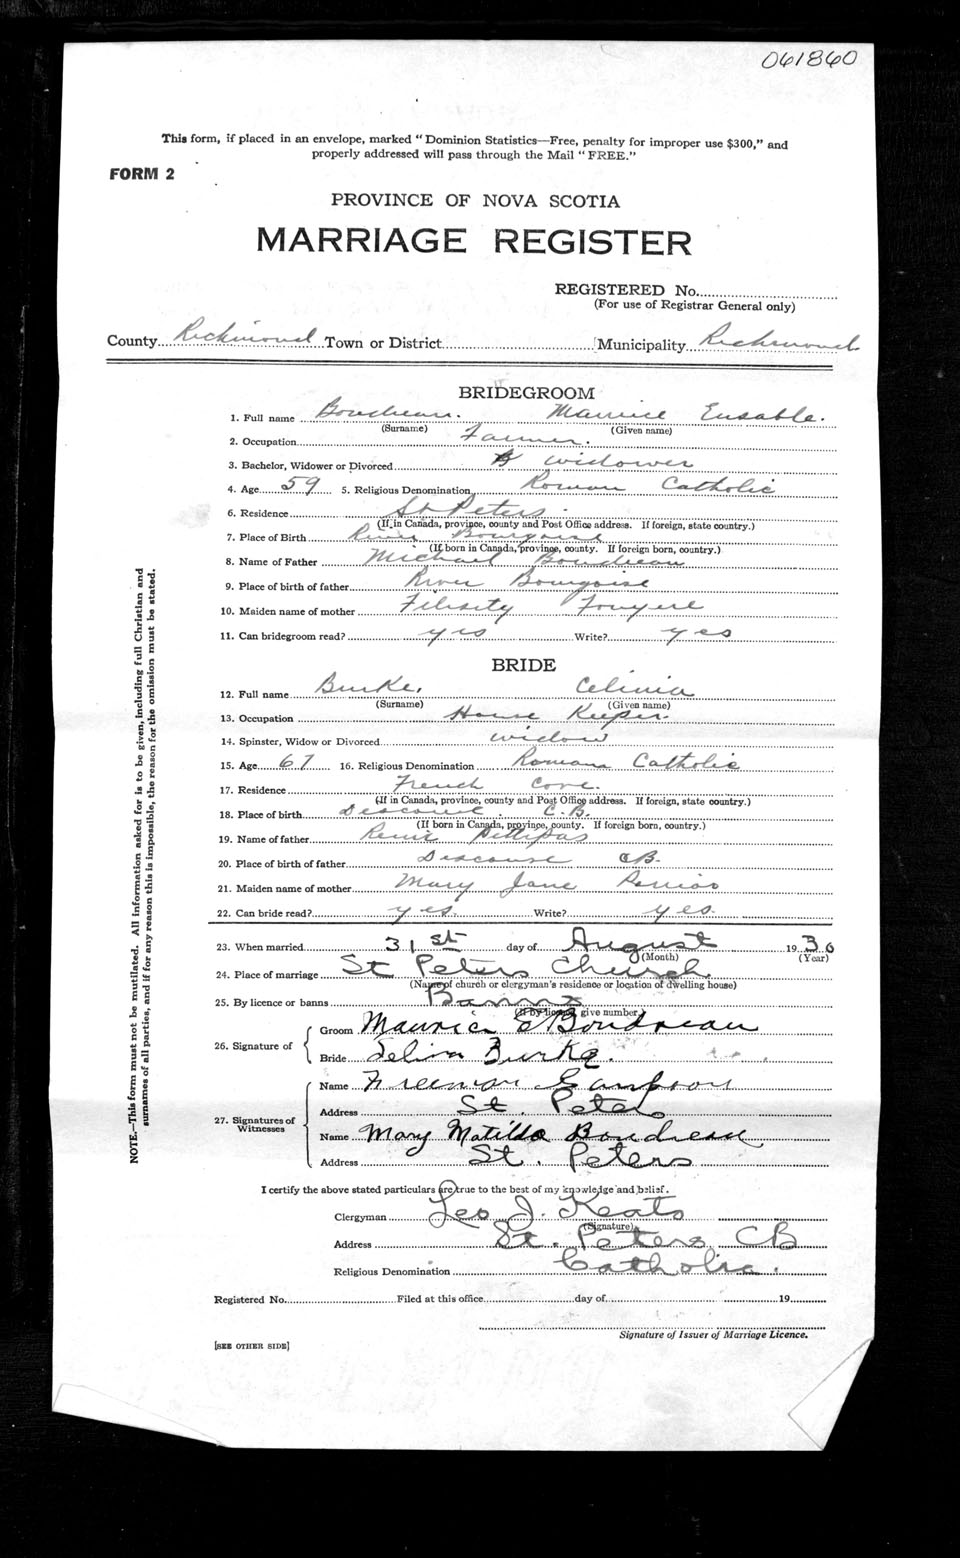 061860
This form, if placed in an envelope, marked "Dominion Statistics—Free, penalty for improper use $300," and
properly addressed will pass through the Mail "FREE."
FORM 2
PROVINCE OF NOVA SCOTIA
MARRIAGE REGISTER
REGISTERED No.
(For use of Registrar General only)
County Richmond Town or District Municipality Richmond
BRIDEGROOM
1. Full name Boudreau. Maurice Eusable.
(Surname) (Given name)
2. Occupation Farmer.
3. Bachelor, Widower or Divorced widower
4. Age 59 5. Religious Denomination Roman Catholic
6. Residence St Peters.
(If in Canada, province, county and Post Office address. If foreign, state country.)
7. Place of Birth River Bourgoise
(If born in Canada, province, county. If foreign born, country.)
8. Name of Father Michael Boudreau
9. Place of birth of father River Bourgoise
10. Maiden name of mother Filisity Fougere
11. Can bridegroom read? yes Write? yes
BRIDE
12. Full name Burke. Celinia
(Surname) (Given name)
13. Occupation House Keeper.
14. Spinster, Widow or Divorced widow
15. Age 67 16. Religious Denomination Roman Catholic
17. Residence French Cove.
(If in Canada, province, county and Post Office address. If foreign, state country.)
18. Place of birth Descouse. C.B.
(If born in Canada, province, county. If foreign born, country.)
19. Name of father Remi Pettipas
20. Place of birth of father Descouse CB.
21. Maiden name of mother Mary Jane
22. Can bride read? yes. Write? yes.
23. When married 31st day of August 1936
(Month) (Year)
24. Place of marriage St Peters Church
(Name of church or clergyman's residence or location of dwelling house)
25. By licence or banns Banns
(If by licence, give number.)
26. Signature of
Groom Maurice E Boudreau
Bride Selina Burke.
27. Signatures of Witnesses
Name Freeman Sampson
Address St. Peters
Name Mary Matilda Boudreau
Address St. Peters
I certify the above stated particulars are true to the best of my knowledge and belief.
Clergyman Leo J. Keats
(Signature)
Address St. Peters CB
Religious Denomination Catholic.
Registered No. Filed at this office day of 19
Signature of Issuer of Marriage Licence.
[SEE OTHER SIDE]
NOTE.—This form must not be mutilated. All information asked for is to be given, including full Christian and
surnames of all parties, and if for any reason this is impossible, the reason for the omission must be stated.